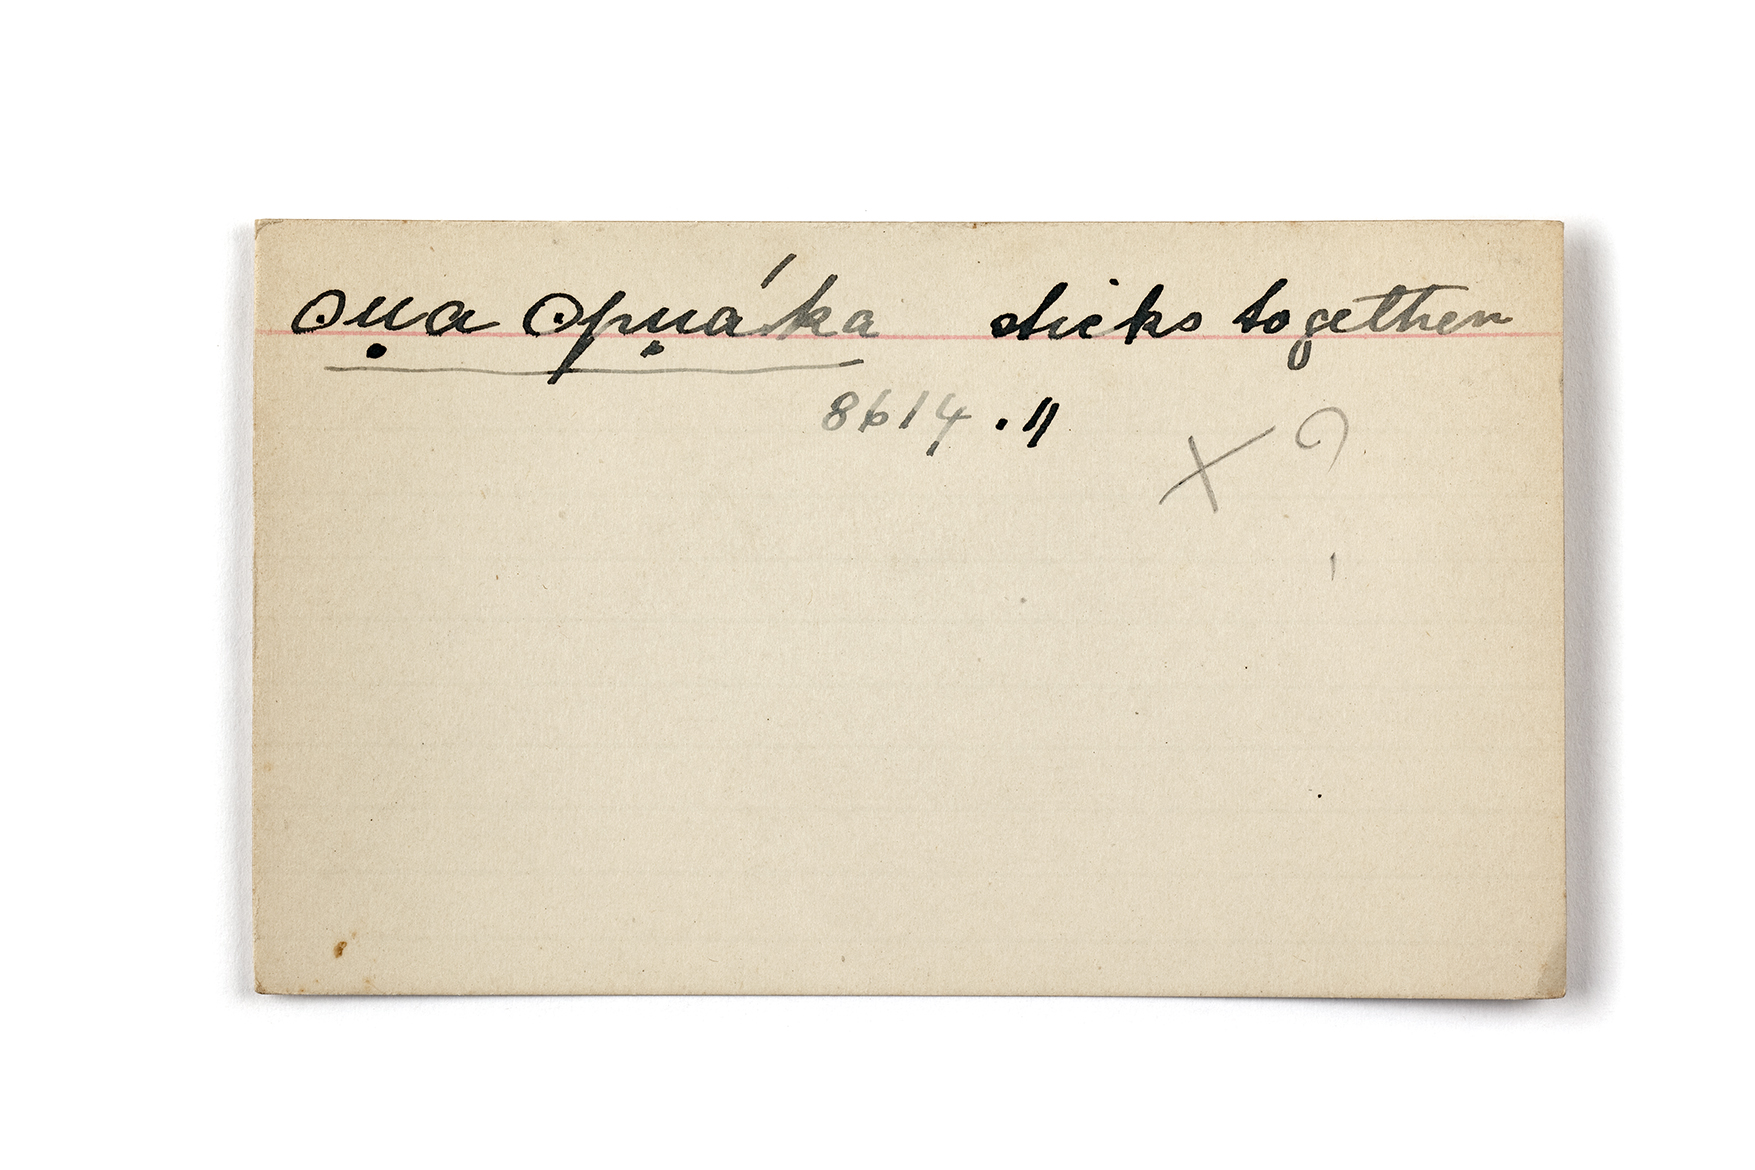 ọụa ọpụáka sticks together
8614 . 11
X ?